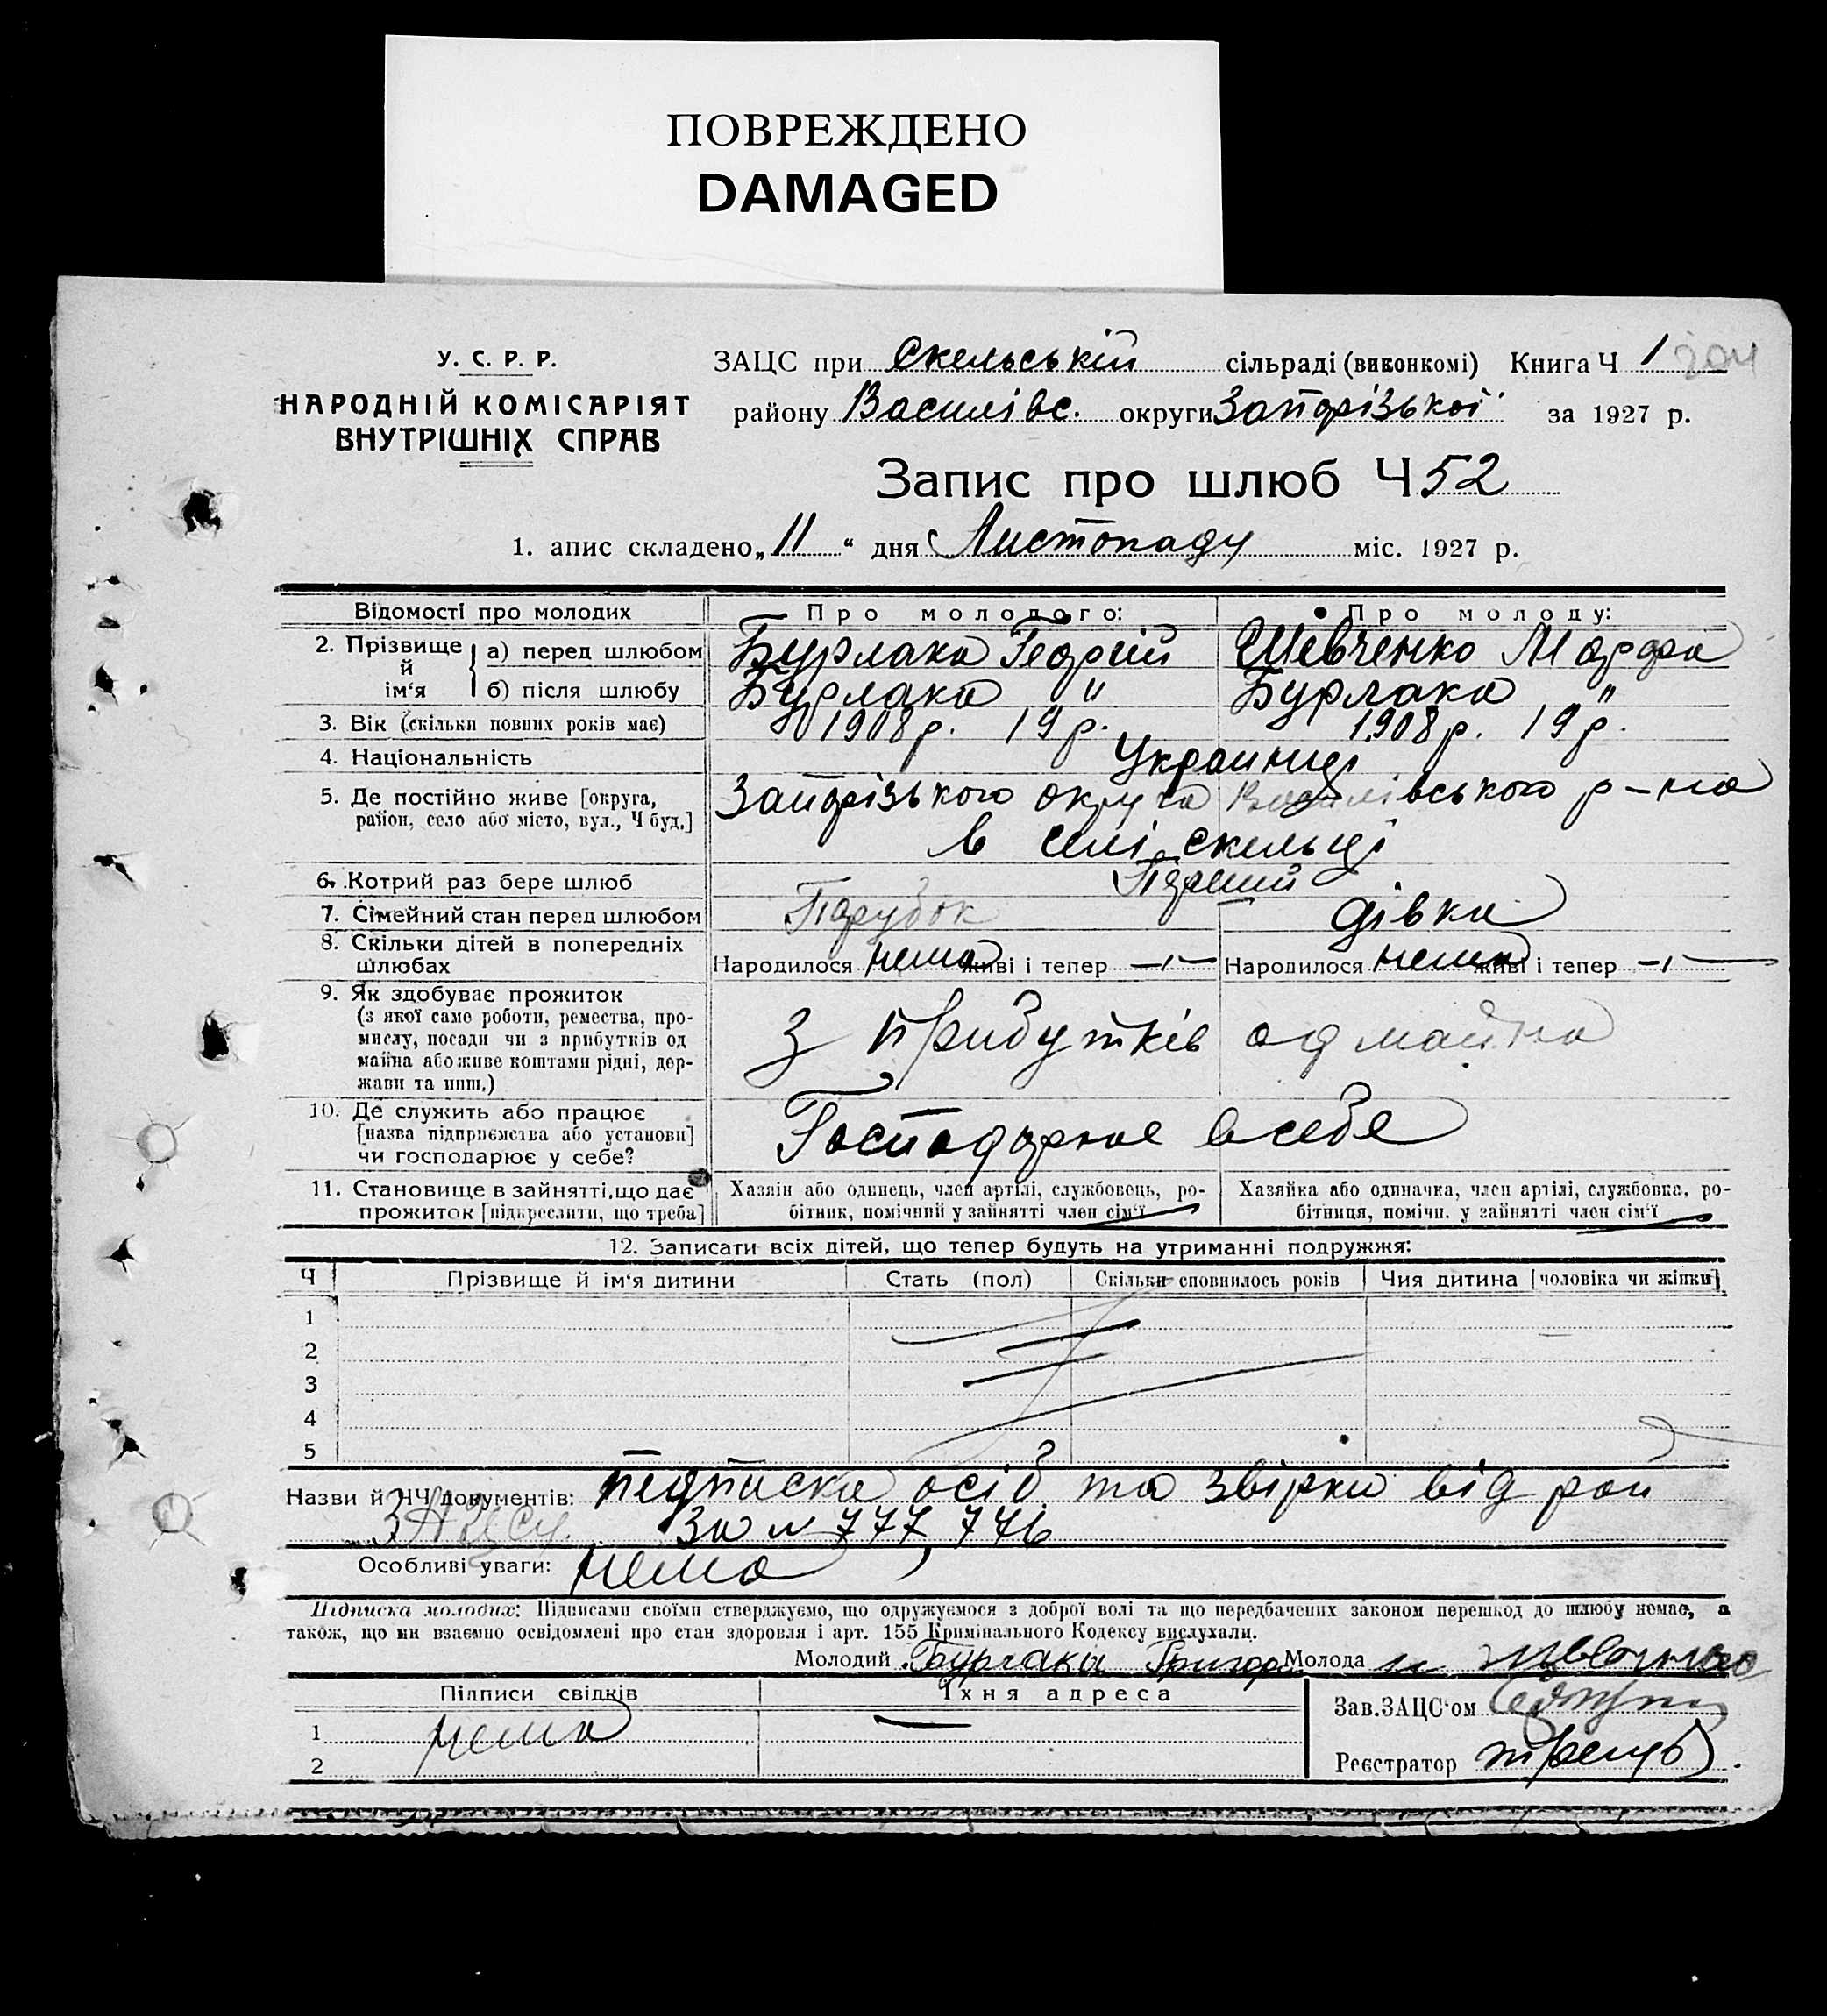 ПОВРЕЖДЕНО
DAMAGED
У. С. Р. Р.
НАРОДНІЙ КОМІСАРІЯТ
ВНУТРІШНІХ СПРАВ
ЗАЦС при Скельській сільраді (виконкомі) Книга Ч 1 204
району Василівс. округи Запорізької за 1927 р.
Запис про шлюб Ч 52
1. апис складено „11“ дня Листопаду міс. 1927 р.
Відомості про молодих Про молодого: Про молоду:
2. Прізвище й ім‘я а) перед шлюбом Бурлака Георгій Шевченко Марфа
б) після шлюбу Бурлака " Бурлака "
3. Вік (скільки повних років має) 1908 р. 19 р. 1908 р. 19 р.
4. Національність Украинці
5. Де постійно живе [округа, Запорізького округа Василівського р-на
район, село або місто, вул., Ч буд.] в селі Скельці
6. Котрий раз бере шлюб Перший
7. Сімейний стан перед шлюбом Парубок дівка
8. Скільки дітей в попередніх
шлюбах Народилося нема живі і тепер —ı— Народилося нема живі і тепер —ı—
9. Як здобуває прожиток
(з якої саме роботи, ремества, про-
мислу, посади чи з прибутків од з прибутків од майна
майна або живе коштами рідні, дер-
жави та инш.)
10. Де служить або працює
[назва підприємства або установи] Господарює в себе
чи господарює у себе?
11. Становище в зайнятті, що дає Хазяїн або одинець, член артілі, службовець, ро- Хазяйка або одиначка, член артілі, службовка, ро-
прожиток [підкреслити, що треба] бітник, помічний у зайнятті член сім‘ї бітниця, помічн. у зайнятті член сім‘ї
12. Записати всіх дітей, що тепер будуть на утриманні подружжя:
Ч Прізвище й ім‘я дитини Стать (пол) Скільки сповнилось років Чия дитина [чоловіка чи жінки]
1
2
3
4
5
Назви й ЧЧ документів: підписка осіб та звірки від рай
ЗАЦСу. За № 777, 776
Особливі уваги: нема
Підписка молодих: Підписами своїми стверджуємо, що одружуємося з доброї волі та що передбачених законом перешкод до шлюбу немає, а
також, що ми взаємно освідомлені про стан здоровля і арт. 155 Кримінального Кодексу вислухали.
Молодий Бурлака Григор Молода
Підписи свідків Їхня адреса
Зав.ЗАЦС‘ом
1 нема —
2
Реєстратор